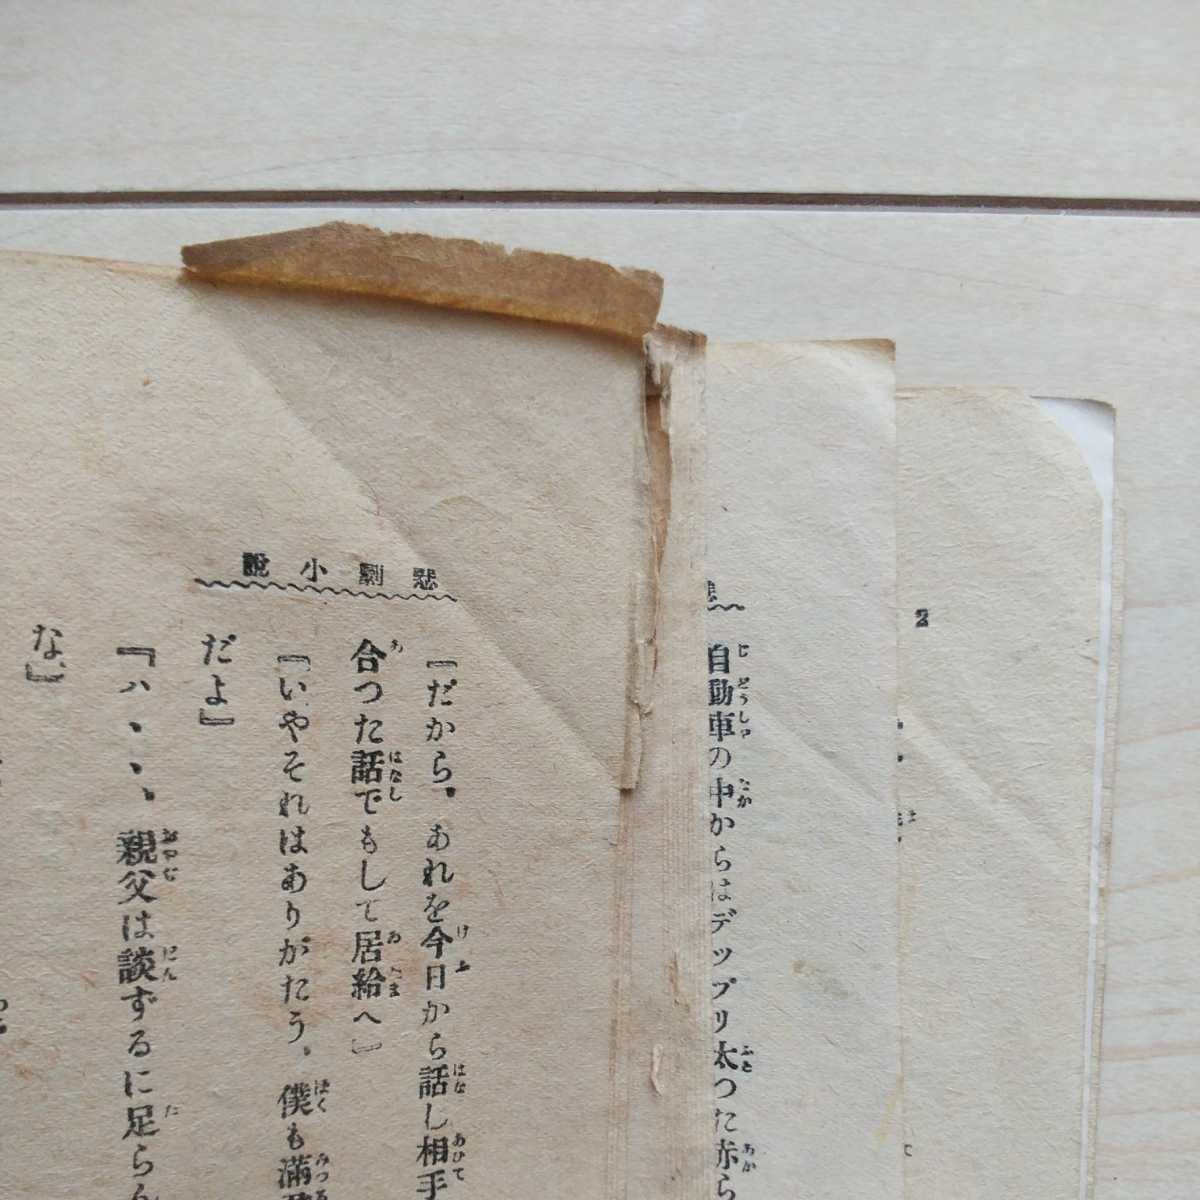 2
自動車の中からはデップリ太つた赤ら
悲劇小説
『だから、あれを今日から話し相手
合つた話でもして居給へ』
『いやそれはありがたう、僕も滿
だよ』
『ハヽヽヽ、親父は談ずるに足らん
な』